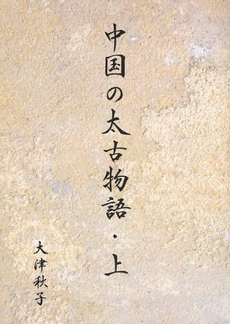 中国の太古物語・上
大津秋子